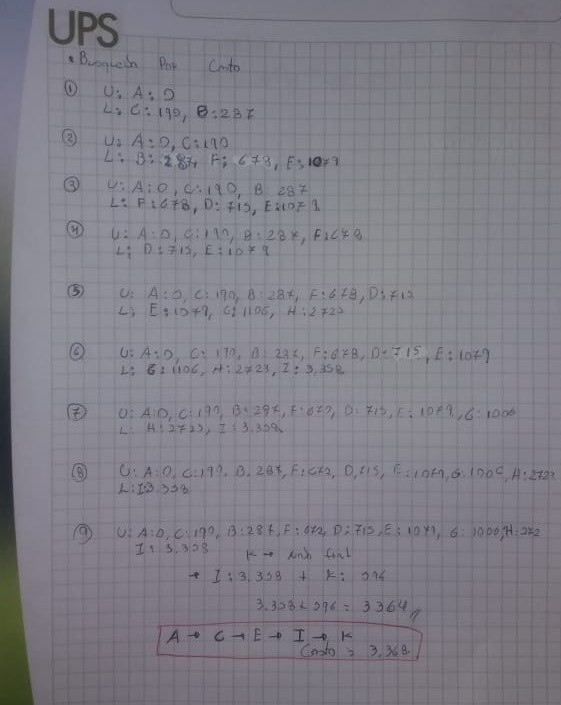 UPS
• Busqueda Por Costo
① U: A: 0
L: C: 190, B: 287
② U: A: 0, C: 190
L: B: 287, F: 678, E: 1079
③ U: A: 0, C: 190, B: 287
L: F: 678, D: 715, E: 1079
④ U: A: 0, C: 190, B: 287, F: 678
L: D: 715, E: 1079
⑤ U: A: 0, C: 190, B: 287, F: 678, D: 715
L: E: 1079, G: 1106, H: 2723
⑥ U: A: 0, C: 190, B: 287, F: 678, D: 715, E: 1079
L: G: 1106, H: 2723, I: 3,358
⑦ U: A: 0, C: 190, B: 287, F: 678, D: 715, E: 1079, G: 1006
L: H: 2723, I: 3,358
⑧ U: A: 0, C: 190, B: 287, F: 678, D: 715, E: 1079, G: 1006, H: 2723
L: I: 3,358
⑨ U: A: 0, C: 190, B: 287, F: 678, D: 715, E: 1079, G: 1000, H: 272
I: 3,358
K →
→ I: 3,358 + K:
= 3364
A → C → E → I → K
Costo = 3,368